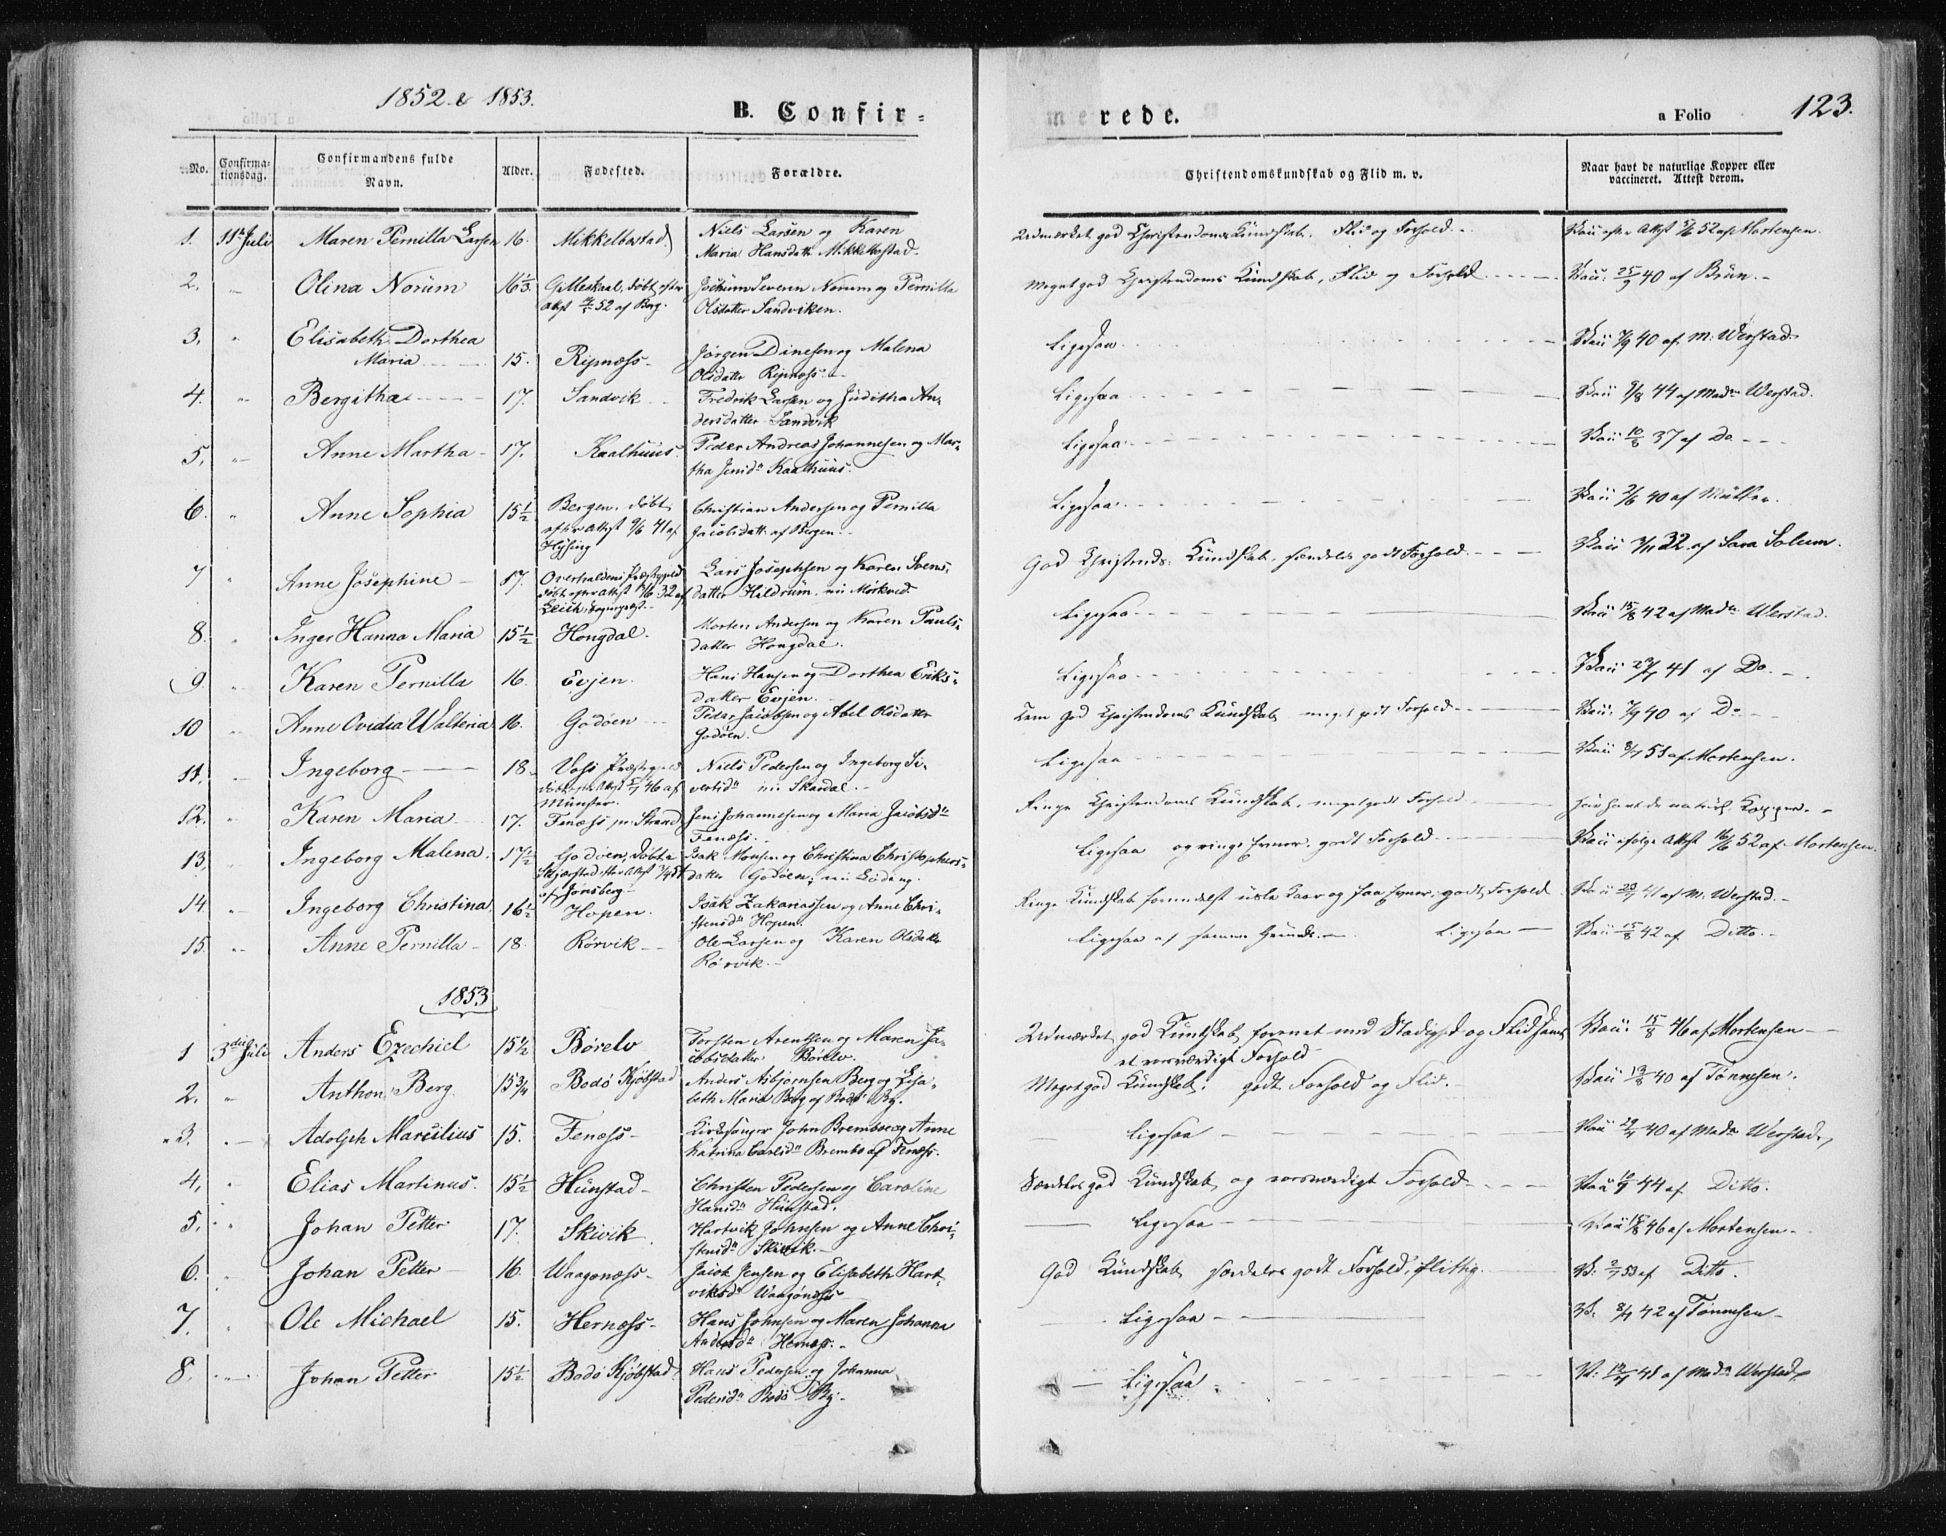 1852 & 1853.
B. Confir-
merede.
a Folio
123.
No.
Confirma-
tionsdag.
Confirmandens fulde
Navn.
Alder.
Fødested.
Forældre.
Christendomskundskab og Flid m. v.
Naar havt de naturlige Kopper eller
vaccineret. Attest derom.
1. 11te Juli Maren Pernilla Larsen 16. Mikkelbostad Niels Larsen og Karen
Maria Hansdatt. Mikkelbostad.
Udmærket god Christendoms Kundskab. Flid og Forhold.
Vacc. efter Attest 52 af Mortensen.
2. Olina Norum 16⅓ Gilleskaal, døbt efter Jochum Severin Norum og Pernilla
Attest 52 af Berg. Olsdatter Sandviken.
Meget god Christendoms Kundskab, Flid og Forhold
Vacc. 25/9 40 af Brun.
3. Elisabeth Dorthea
Maria 15. Ripnæss Jørgen Dinesen og Malena
Olsdatter Ripnæss.
Ligesaa
Vacc 7/9 40 af M. Werstad
4. Bergitha 17. Sandvik Fredrik Larsen og Juditha An-
dersdatter Sandvik
Ligesaa
Vacc 9/8 44 af Madm Werstad.
5. Anne Martha 17. Kaalhuus Peder Andreas Johannesen og Mar-
tha Jensdr Kaalhuus.
Ligesaa
Vacc 10/8 37 af Do
6. Anne Sophia 15½ Bergen, døbt Christian Andersen og Pernilla
efter Attest 9/6 41 af Jacobsdatt. af Bergen.
Hysing
Ligesaa
Vacc 40 af Müller.
7 Anne Josephine 17. Overhaldens Præstegjeld Lars Josephsen og Karen Svens-
døbt efter Attest 32 af datter Hildrum, nu Mørkved
God Christends. Kundskab, særdeles godt Forhold.
Vacc 7/11 32 af Sara Solum.
8. Inger Hanna Maria 15½ Hongdal. Morten Andersen og Karen Pauls-
datter Hongdal.
Ligesaa
Vacc 15/8 42 af Madm Werstad.
9. Karen Pernilla 16. Evjen. Hans Hansen og Dorthea Eriks-
datter Evjen.
Ligesaa
Vacc 41 af Do.
10 Anne Ovidia Walteria 16. Godøen Peder Jacobsen og Abel Olsdatter
Godøen.
Tem. God Christendoms Kundskab meget godt Forhold
Vacc. 7/9 40 af Do
11. Ingeborg 18. Voss Præstegjeld Niels Pedersen og Ingeborg Si-
døbt efter Attest 46 af vertsdr nu Skandal.
Münster.
Ligesaa
Vacc 51 af Mortensen.
12. Karen Maria 17. Fenæss pr. Strand Jens Johannesen og Maria Jacobsdr
Fenæss.
Ringe Christendoms Kundskab, meget godt Forhold
har havt de naturl. Kopper.
13. Ingeborg Malena. 17½ Godøen, døbt i Isak Monsen og Christina Christophers-
Skjærstad efter Attest datter Godøen, nu Løding.
af Jønsberg
Ligesaa og ringe Evner, godt Forhold
Vacc ifølge Attest 16/6 52 af Mortensen.
14 Ingeborg Christina 16½ Hopen. Isak Zakariassen og Anne Chri-
stensdr Hopen.
Ringe Kundskab formedelst usle Kaar og faa Evner, godt Forhold
Vacc 41 af M. Werstad.
15 Anne Pernilla 18. Rørvik Ole Larsen og Karen Olsdatter
Rørvik.
Ligesaa af samme Grunde. Ligesaa
Vacc 15/8 42 af Ditto.
1853
1 3die Juli Anders Ezechiel 15½ Børelv Torsten Arentsen og Maren Ja-
cobsdatter Børelv.
Udmærket god Kundskab forenet med Stadighed og Flid samt
et rosværdigt Forhold
Vacc. 15/8 46 af Mortensen
2. Anthon Berg. 15¾ Bodø Kjøbstad Anders Asbjørnsen Berg og Elisa-
beth Maria Berg af Bodø By.
Meget god Kundskab, godt Forhold og Flid.
Vacc 13/8 40 af Tønnesen.
3. Adolph Marcilius 15. Fenæss Kirkesanger John Brembo og Anne
Katrina Carlsdr Brembo af Fenæss.
Ligesaa
Vacc 40 af Madm Werstad.
4. Elias Martinus. 15½ Hunstad Christen Pedersen og Caroline
Hansdr Hunstad.
Særdeles god Kundskab og rosværdigt Forhold
Vacc 44 af Ditto.
5. Johan Petter 17. Skivik Hartvik Johnsen og Anne Chri-
stensdr Skivik.
Ligesaa
Vacc 46 af Mortensen
6. Johan Petter 16. Waagønæss Jacob Jensen og Elisabeth Hart-
viksdr Waagønæss
God Kundskab særdeles godt Forhold, flittig.
V. 53 af Ditto.
7. Ole Michael 15. Hernæss Hans Johnsen og Maren Johanna
Andersdr Hernæss.
Ligesaa
V. 42 af Tønnesen
8. Johan Petter 15½ Bodø Kjøbstad Hans Pedersen og Johanna
Pedersdr Bodø By.
Ligesaa
V. 41 af Madm Werstad